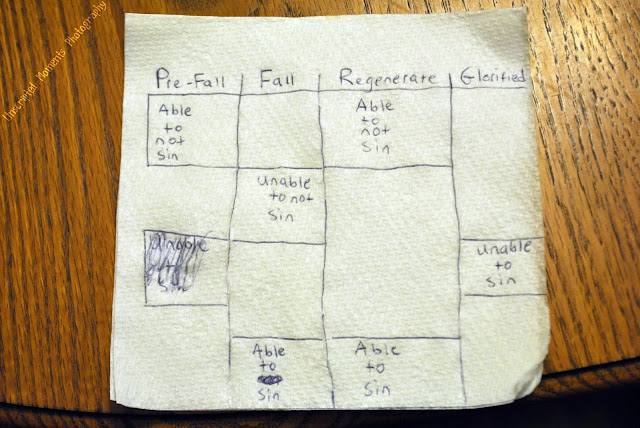 Unscripted Moments Photography
Pre-Fall Fall Regenerate Glorified
Able
to
not
Sin
Able
to
not
Sin
unable
to not
Sin
Unable
unable
to
Sin
Able
to
Sin
Able
to
Sin